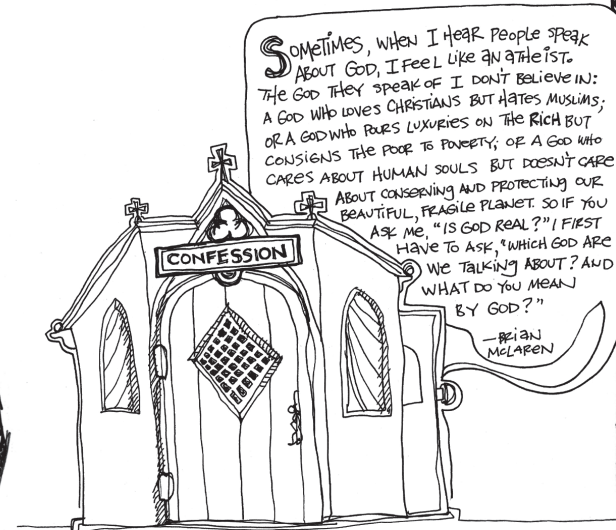 SOMETIMES, WHEN I HEAR PEOPLE SPEAK
ABOUT GOD, I FEEL LIKE AN ATHEIST.
THE GOD THEY SPEAK OF I DON'T BELIEVE IN:
A GOD WHO LOVES CHRISTIANS BUT HATES MUSLIMS;
OR A GOD WHO POURS LUXURIES ON THE RICH BUT
CONSIGNS THE POOR TO POVERTY; OR A GOD WHO
CARES ABOUT HUMAN SOULS BUT DOESN'T CARE
ABOUT CONSERVING AND PROTECTING OUR
BEAUTIFUL, FRAGILE PLANET. SO IF YOU
ASK ME, "IS GOD REAL?" I FIRST
HAVE TO ASK, "WHICH GOD ARE
WE TALKING ABOUT? AND
WHAT DO YOU MEAN
BY GOD?"
—BRIAN
MCLAREN
CONFESSION